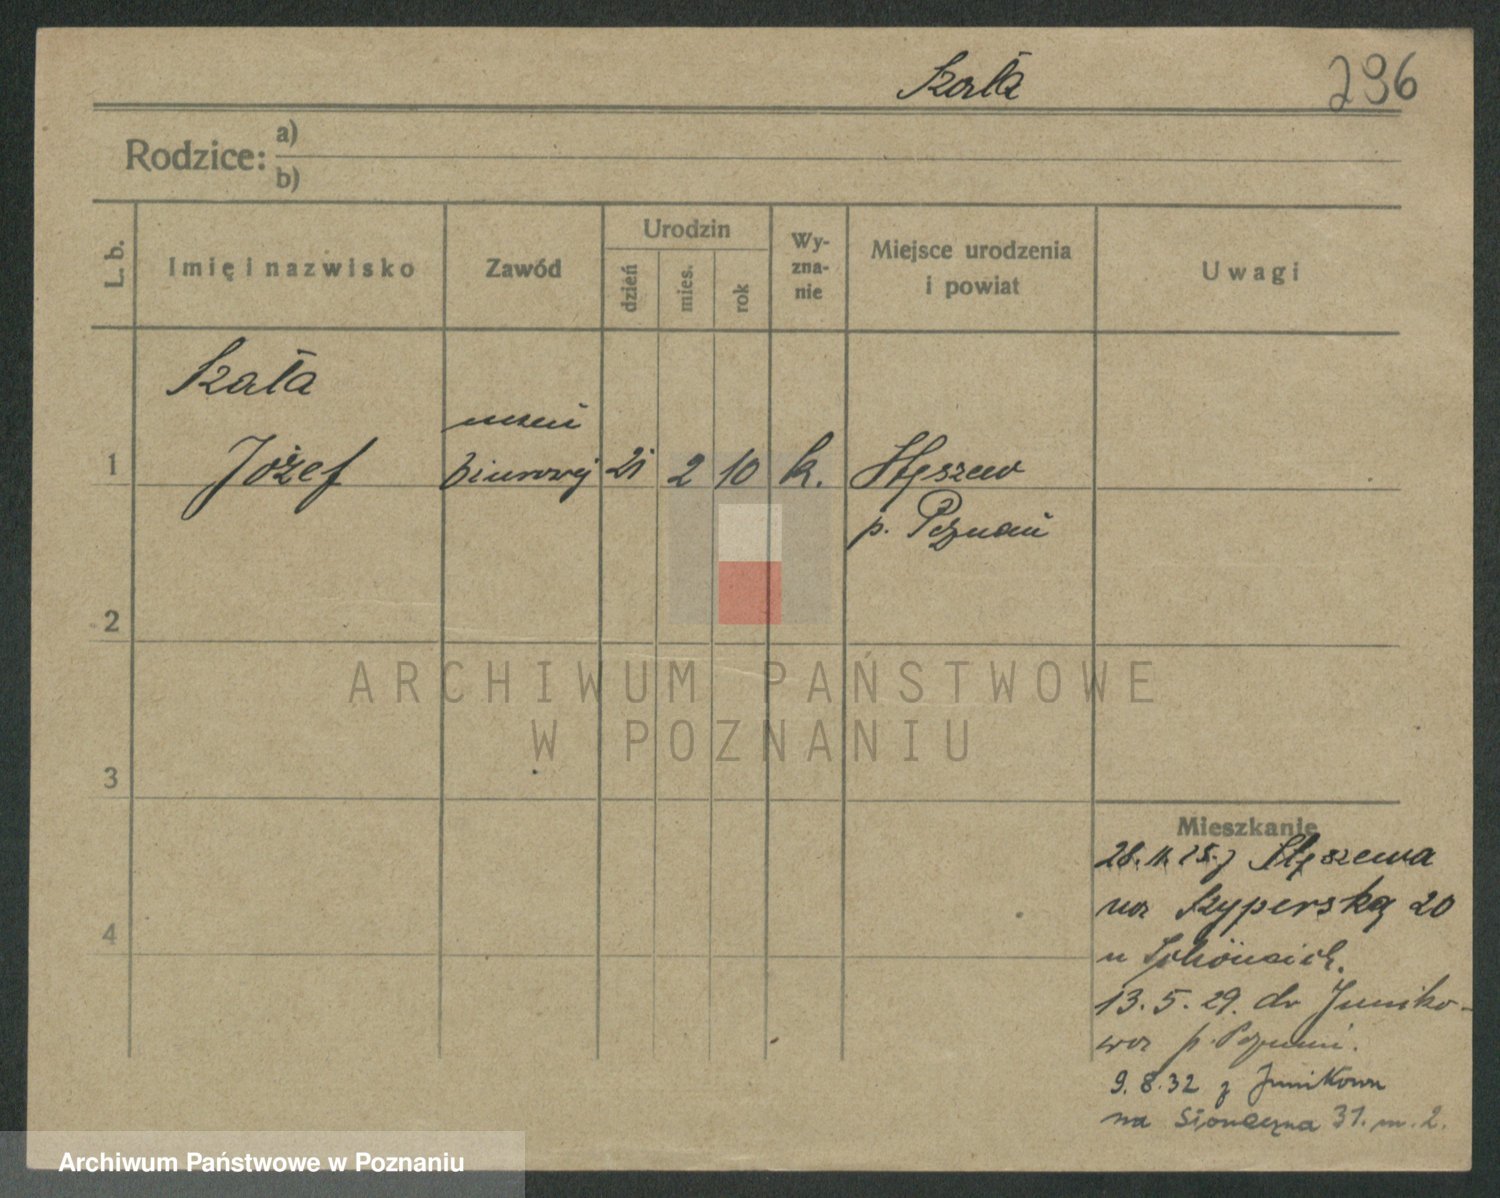 Szała
296
Rodzice: a)
b)
L. b.
Imię i nazwisko
Zawód
Urodzin
dzień
mies.
rok
Wy-
zna-
nie
Miejsce urodzenia
i powiat
Uwagi
Szała
uczeń
1 Józef biurowy 21 2 10 k. Stęszew
p. Poznań
2
3
4
ARCHIWUM PAŃSTWOWE
W POZNANIU
Mieszkanie
28. 11. 25. z Stęszewa
na Szyperską 20
u
13. 5. 29. do Juniko-
wa p. Poznań.
9. 8. 32 z Junikowa
na Słoneczna 31. m. 2.
Archiwum Państwowe w Poznaniu